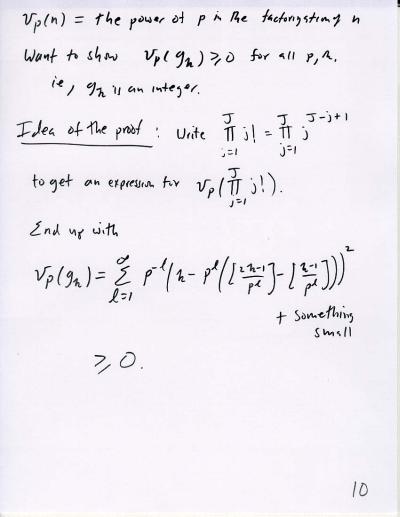 v_p(n) = the power of p in the factorization of n
Want to show v_p(g_k) ≥ 0 for all p, k.
ie, g_k is an integer.
Idea of the proof : Write ∏_{j=1}^{J} j! = ∏_{j=1}^{J} j^{J-j+1}
to get an expression for v_p(∏_{j=1}^{J} j!).
End up with
v_p(g_k) = ∑_{l=1}^{∞} p^{-l}(k - p^l([2k-1/p^l] - [k-1/p^l]))^2
+ something
small
≥ 0.
10